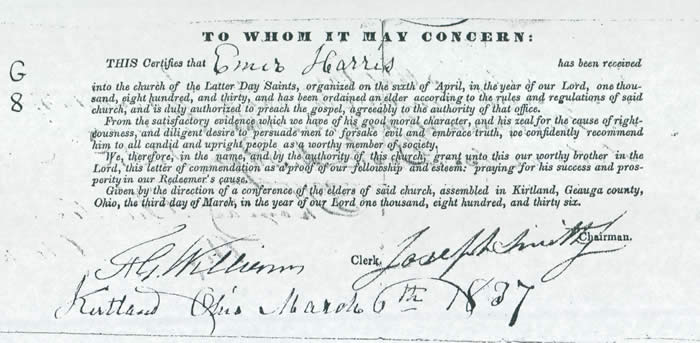 TO WHOM IT MAY CONCERN:
THIS Certifies that Emer Harris has been received
into the church of the Latter Day Saints, organized on the sixth of April, in the year of our Lord, one thou-
sand, eight hundred, and thirty, and has been ordained an elder according to the rules and regulations of said
church, and is duly authorized to preach the gospel, agreeably to the authority of that office.
From the satisfactory evidence which we have of his good moral character, and his zeal for the cause of right-
eousness, and diligent desire to persuade men to forsake evil and embrace truth, we confidently recommend
him to all candid and upright people as a worthy member of society.
We, therefore, in the name, and by the authority of this church, grant unto this our worthy brother in the
Lord, this letter of commendation as a proof of our fellowship and esteem: praying for his success and pros-
perity in our Redeemer's cause.
Given by the direction of a conference of the elders of said church, assembled in Kirtland, Geauga county,
Ohio, the third day of March, in the year of our Lord one thousand, eight hundred, and thirty six.
F G Williams Clerk. Joseph Smith Chairman.
Kirtland Ohio March 6th 1837
G
8